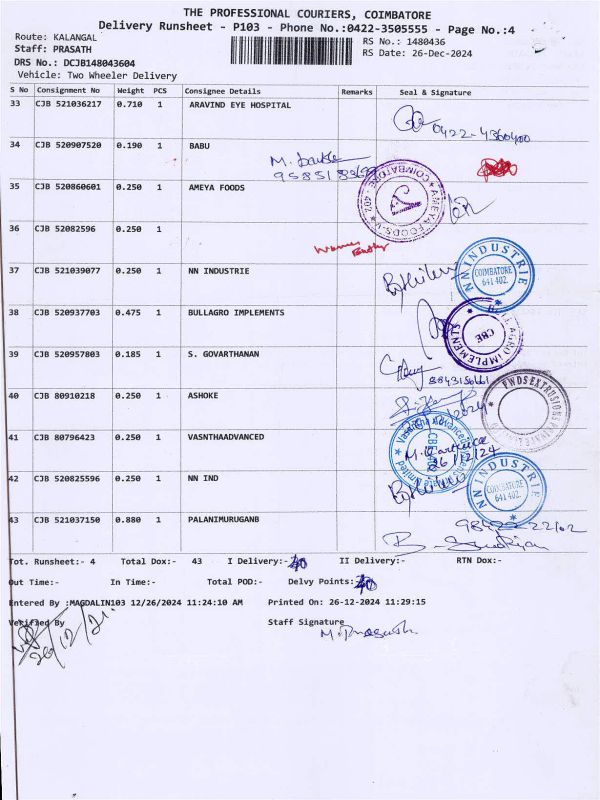 THE PROFESSIONAL COURIERS, COIMBATORE
Delivery Runsheet - P103 - Phone No.:0422-3505555 - Page No.:4
Route: KALANGAL RS No.: 1480436
Staff: PRASATH RS Date: 26-Dec-2024
DRS No.: DCJB148043604
Vehicle: Two Wheeler Delivery
S No Consignment No Weight PCS Consignee Details Remarks Seal & Signature
33 CJB 521036217 0.710 1 ARAVIND EYE HOSPITAL
0422-4360400
34 CJB 520907520 0.190 1 BABU
35 CJB 520860601 0.250 1 AMEYA FOODS
36 CJB 52082596 0.250 1
37 CJB 521039077 0.250 1 NN INDUSTRIE
NN INDUSTRIE
COIMBATORE
641 402.
38 CJB 520937703 0.475 1 BULLAGRO IMPLEMENTS
CBE
39 CJB 520957803 0.185 1 S. GOVARTHANAN
40 CJB 80910218 0.250 1 ASHOKE
41 CJB 80796423 0.250 1 VASNTHAADVANCED
26/12/24
42 CJB 520825596 0.250 1 NN IND
NN INDUSTRIE
COIMBATORE
641 402.
43 CJB 521037150 0.880 1 PALANIMURUGANB
Tot. Runsheet:- 4 Total Dox:- 43 I Delivery:- II Delivery:- RTN Dox:-
Out Time:- In Time:- Total POD:- Delvy Points:
Entered By :MAGDALIN103 12/26/2024 11:24:10 AM Printed On: 26-12-2024 11:29:15
Verified By Staff Signature
M. Prasath